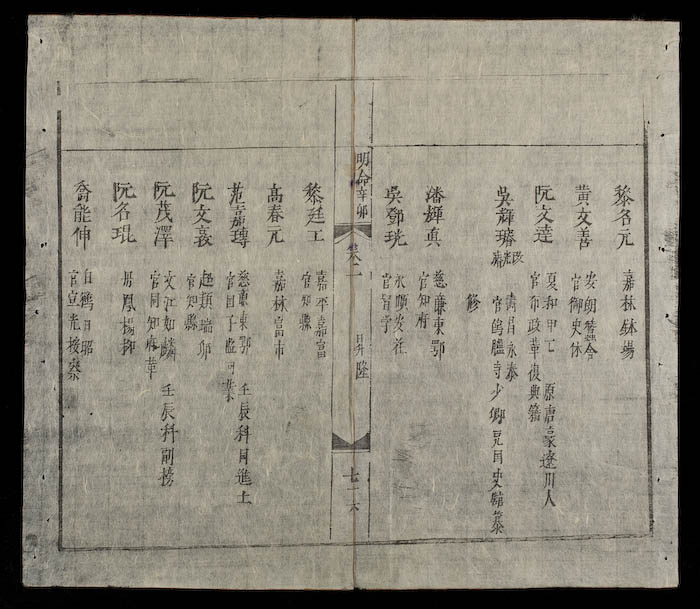 黎名元 嘉林鉢塲
黄文善 安朗
官御史休
阮文達 夏和甲 原唐豪遼川人
官布政革復典籍
吳輝 青眉永泰
官鴻臚寺少卿充囯史館纂
修
潘輝真 慈廉東鄂
官知府
吳鄧珖 永順安社
官督学
明命辛卯 卷二 昇隆 七十六
黎廷工 嘉平嘉富
官知縣
高春元 嘉林富市
范嘉 慈廉東鄂 壬辰科同進士
官囯子監司業
阮文 超類瑞卯
官知縣
阮茂澤 文江如麟 壬辰科副榜
官同知府革
阮名琨 丹鳳楊柳
喬能伸 白鶴日昭